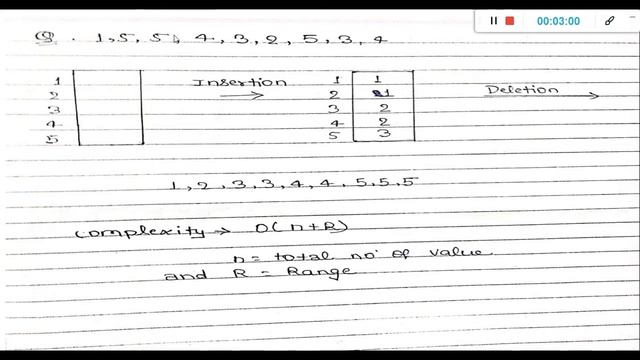 00:03:00
Q. 1, 5, 5, 4, 3, 2, 5, 3, 4
Insertion
Deletion
1
2
3
4
5
1 1
2 1
3 2
4 2
5 3
1, 2, 3, 3, 4, 4, 5, 5, 5
Complexity → O(n+R)
n = total no. of value
and R = Range